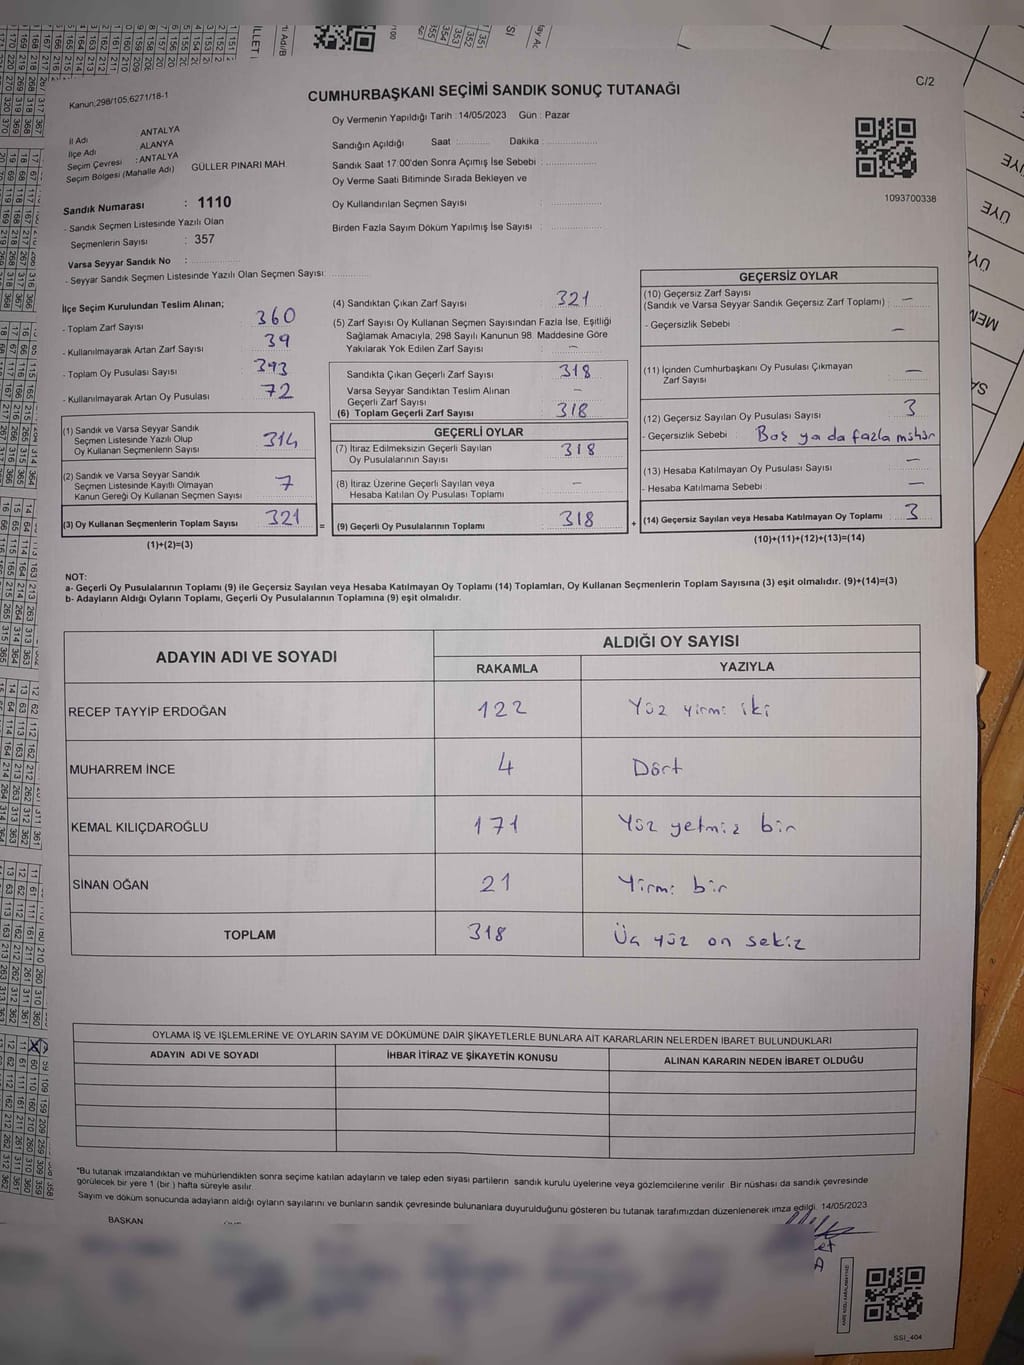 CUMHURBAŞKANI SEÇİMİ SANDIK SONUÇ TUTANAĞI
C/2
Kanun;298/105,6271/18-1
Oy Vermenin Yapıldığı Tarih : 14/05/2023 Gün : Pazar
İl Adı ANTALYA
İlçe Adı ALANYA
Seçim Çevresi : ANTALYA
Seçim Bölgesi (Mahalle Adı) GÜLLER PINARI MAH.
Sandığın Açıldığı Saat : Dakika :
Sandık Saat 17:00'den Sonra Açımış İse Sebebi :
Oy Verme Saati Bitiminde Sırada Bekleyen ve
Oy Kullandırılan Seçmen Sayısı :
Birden Fazla Sayım Döküm Yapılmış İse Sayısı :
1093700338
Sandık Numarası : 1110
- Sandık Seçmen Listesinde Yazılı Olan
Seçmenlerin Sayısı : 357
Varsa Seyyar Sandık No :
- Seyyar Sandık Seçmen Listesinde Yazılı Olan Seçmen Sayısı:
İlçe Seçim Kurulundan Teslim Alınan;
- Toplam Zarf Sayısı 360
- Kullanılmayarak Artan Zarf Sayısı 39
- Toplam Oy Pusulası Sayısı 393
- Kullanılmayarak Artan Oy Pusulası 72
(1) Sandık ve Varsa Seyyar Sandık
Seçmen Listesinde Yazılı Olup
Oy Kullanan Seçmenlerın Sayısı 314
(2) Sandık ve Varsa Seyyar Sandık
Seçmen Listesinde Kayıtlı Olmayan
Kanun Gereği Oy Kullanan Seçmen Sayısı 7
(3) Oy Kullanan Seçmenlerin Toplam Sayısı 321 =
(1)+(2)=(3)
(4) Sandıktan Çıkan Zarf Sayısı 321
(5) Zarf Sayısı Oy Kullanan Seçmen Sayısından Fazla İse, Eşitliği
Sağlamak Amacıyla, 298 Sayılı Kanunun 98. Maddesine Göre
Yakılarak Yok Edilen Zarf Sayısı : —
Sandıkta Çıkan Geçerli Zarf Sayısı 318
Varsa Seyyar Sandıktan Teslim Alınan
Geçerli Zarf Sayısı —
(6) Toplam Geçerli Zarf Sayısı 318
GEÇERLİ OYLAR
(7) İtiraz Edilmeksizin Geçerli Sayılan
Oy Pusulalarının Sayısı 318
(8) İtiraz Üzerine Geçerli Sayılan veya
Hesaba Katılan Oy Pusulası Toplamı —
(9) Geçerli Oy Pusulalarının Toplamı 318 +
GEÇERSİZ OYLAR
(10) Geçersiz Zarf Sayısı
(Sandık ve Varsa Seyyar Sandık Geçersiz Zarf Toplamı) : —
- Geçersizlik Sebebi : —
(11) İçinden Cumhurbaşkanı Oy Pusulası Çıkmayan
Zarf Sayısı —
(12) Geçersiz Sayılan Oy Pusulası Sayısı 3
- Geçersizlik Sebebi Boş ya da fazla mühür
(13) Hesaba Katılmayan Oy Pusulası Sayısı —
- Hesaba Katılmama Sebebi : —
(14) Geçersiz Sayılan veya Hesaba Katılmayan Oy Toplamı 3
(10)+(11)+(12)+(13)=(14)
NOT:
a- Geçerli Oy Pusulalarının Toplamı (9) ile Geçersiz Sayılan veya Hesaba Katılmayan Oy Toplamı (14) Toplamları, Oy Kullanan Seçmenlerin Toplam Sayısına (3) eşit olmalıdır. (9)+(14)=(3)
b- Adayların Aldığı Oyların Toplamı, Geçerli Oy Pusulalarının Toplamına (9) eşit olmalıdır.
ADAYIN ADI VE SOYADI ALDIĞI OY SAYISI
RAKAMLA YAZIYLA
RECEP TAYYİP ERDOĞAN 122 Yüz yirmi iki
MUHARREM İNCE 4 Dört
KEMAL KILIÇDAROĞLU 171 Yüz yetmiz bir
SİNAN OĞAN 21 Yirmi bir
TOPLAM 318 Üç yüz on sekiz
OYLAMA İŞ VE İŞLEMLERİNE VE OYLARIN SAYIM VE DÖKÜMÜNE DAİR ŞİKAYETLERLE BUNLARA AİT KARARLARIN NELERDEN İBARET BULUNDUKLARI
ADAYIN ADI VE SOYADI İHBAR İTİRAZ VE ŞİKAYETİN KONUSU ALINAN KARARIN NEDEN İBARET OLDUĞU
*Bu tutanak imzalandıktan ve mühürlendikten sonra seçime katılan adayların ve talep eden siyası partilerin sandık kurulu üyelerine veya gözlemcilerine verilir. Bir nüshası da sandık çevresinde
görülecek bir yere 1 (bir ) hafta süreyle asılır.
Sayım ve döküm sonucunda adayların aldığı oyların sayılarını ve bunların sandık çevresinde bulunanlara duyurulduğunu gösteren bu tutanak tarafımızdan düzenlenerek imza edildi. 14/05/2023
BAŞKAN
SSI_404